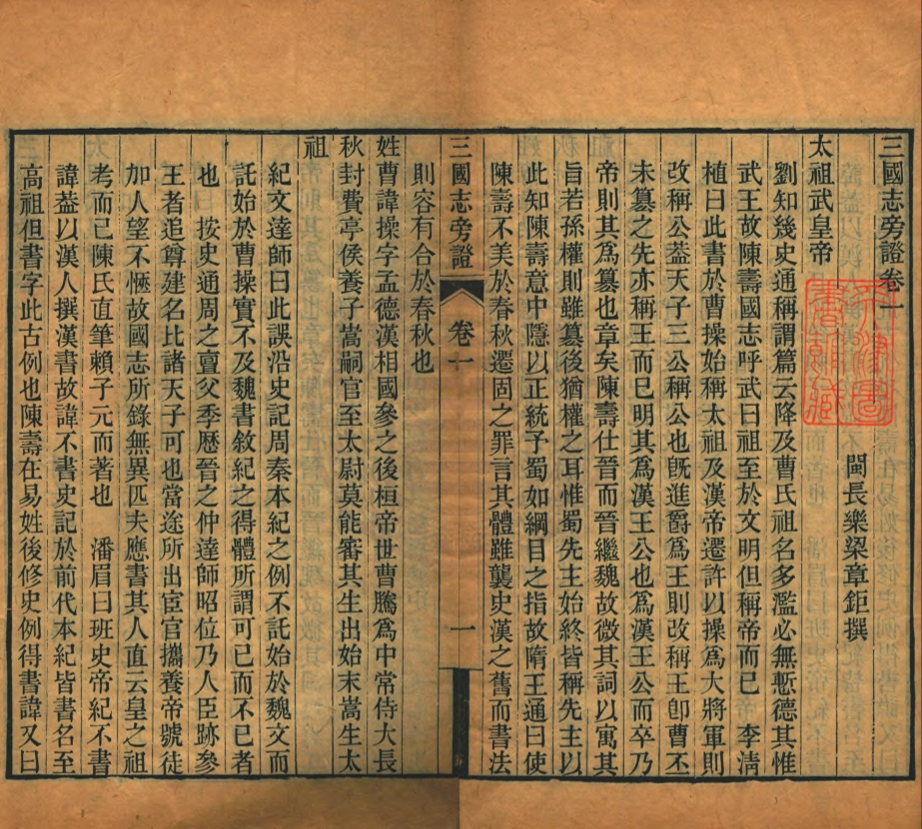 三國志旁證卷一
閩長樂梁章鉅撰
太祖武皇帝
劉知幾史通稱謂篇云降及曹氏祖名多濫必無慙德其惟
武王故陳壽國志呼武曰祖至於文明但稱帝而已　李清
植曰此書於曹操始稱太祖及漢帝遷許以操爲大將軍則
改稱公葢天子三公稱公也旣進爵爲王則改稱王卽曹丕
未篡之先亦稱王而已明其爲漢王公也爲漢王公而卒乃
帝則其爲篡也章矣陳壽仕晉而晉繼魏故微其詞以寓其
旨若孫權則雖篡後猶權之耳惟蜀先主始終皆稱先主以
此知陳壽意中隱以正統予蜀如綱目之指故隋王通曰使
陳壽不美於春秋遷固之罪言其體雖襲史漢之舊而書法
三國志旁證　卷一　一
則容有合於春秋也
姓曹諱操字孟德漢相國參之後桓帝世曹騰爲中常侍大長
秋封費亭侯養子嵩嗣官至太尉莫能審其生出始末嵩生太
祖
紀文達師曰此誤沿史記周秦本紀之例不託始於魏文而
託始於曹操實不及魏書敘紀之得體所謂可已而不已者
也　按史通周之亶父季歷晉之仲達師昭位乃人臣跡參
王者追尊建名比諸天子可也當途所出宦官攜養帝號徒
加人望不愜故國志所錄無異匹夫應書其人直云皇之祖
考而已陳氏直筆賴子元而著也　潘眉曰班史帝紀不書
諱葢以漢人撰漢書故諱不書史記於前代本紀皆書名至
高祖但書字此古例也陳壽在易姓後修史例得書諱又曰